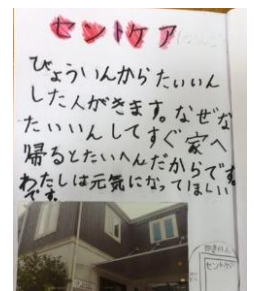 セントケア
びょういんからたいいん
した人がきます。なぜな
たいいんしてすぐ家へ
帰るとたいへんだからです。
わたしは元気になってほしい
です。
セントケア